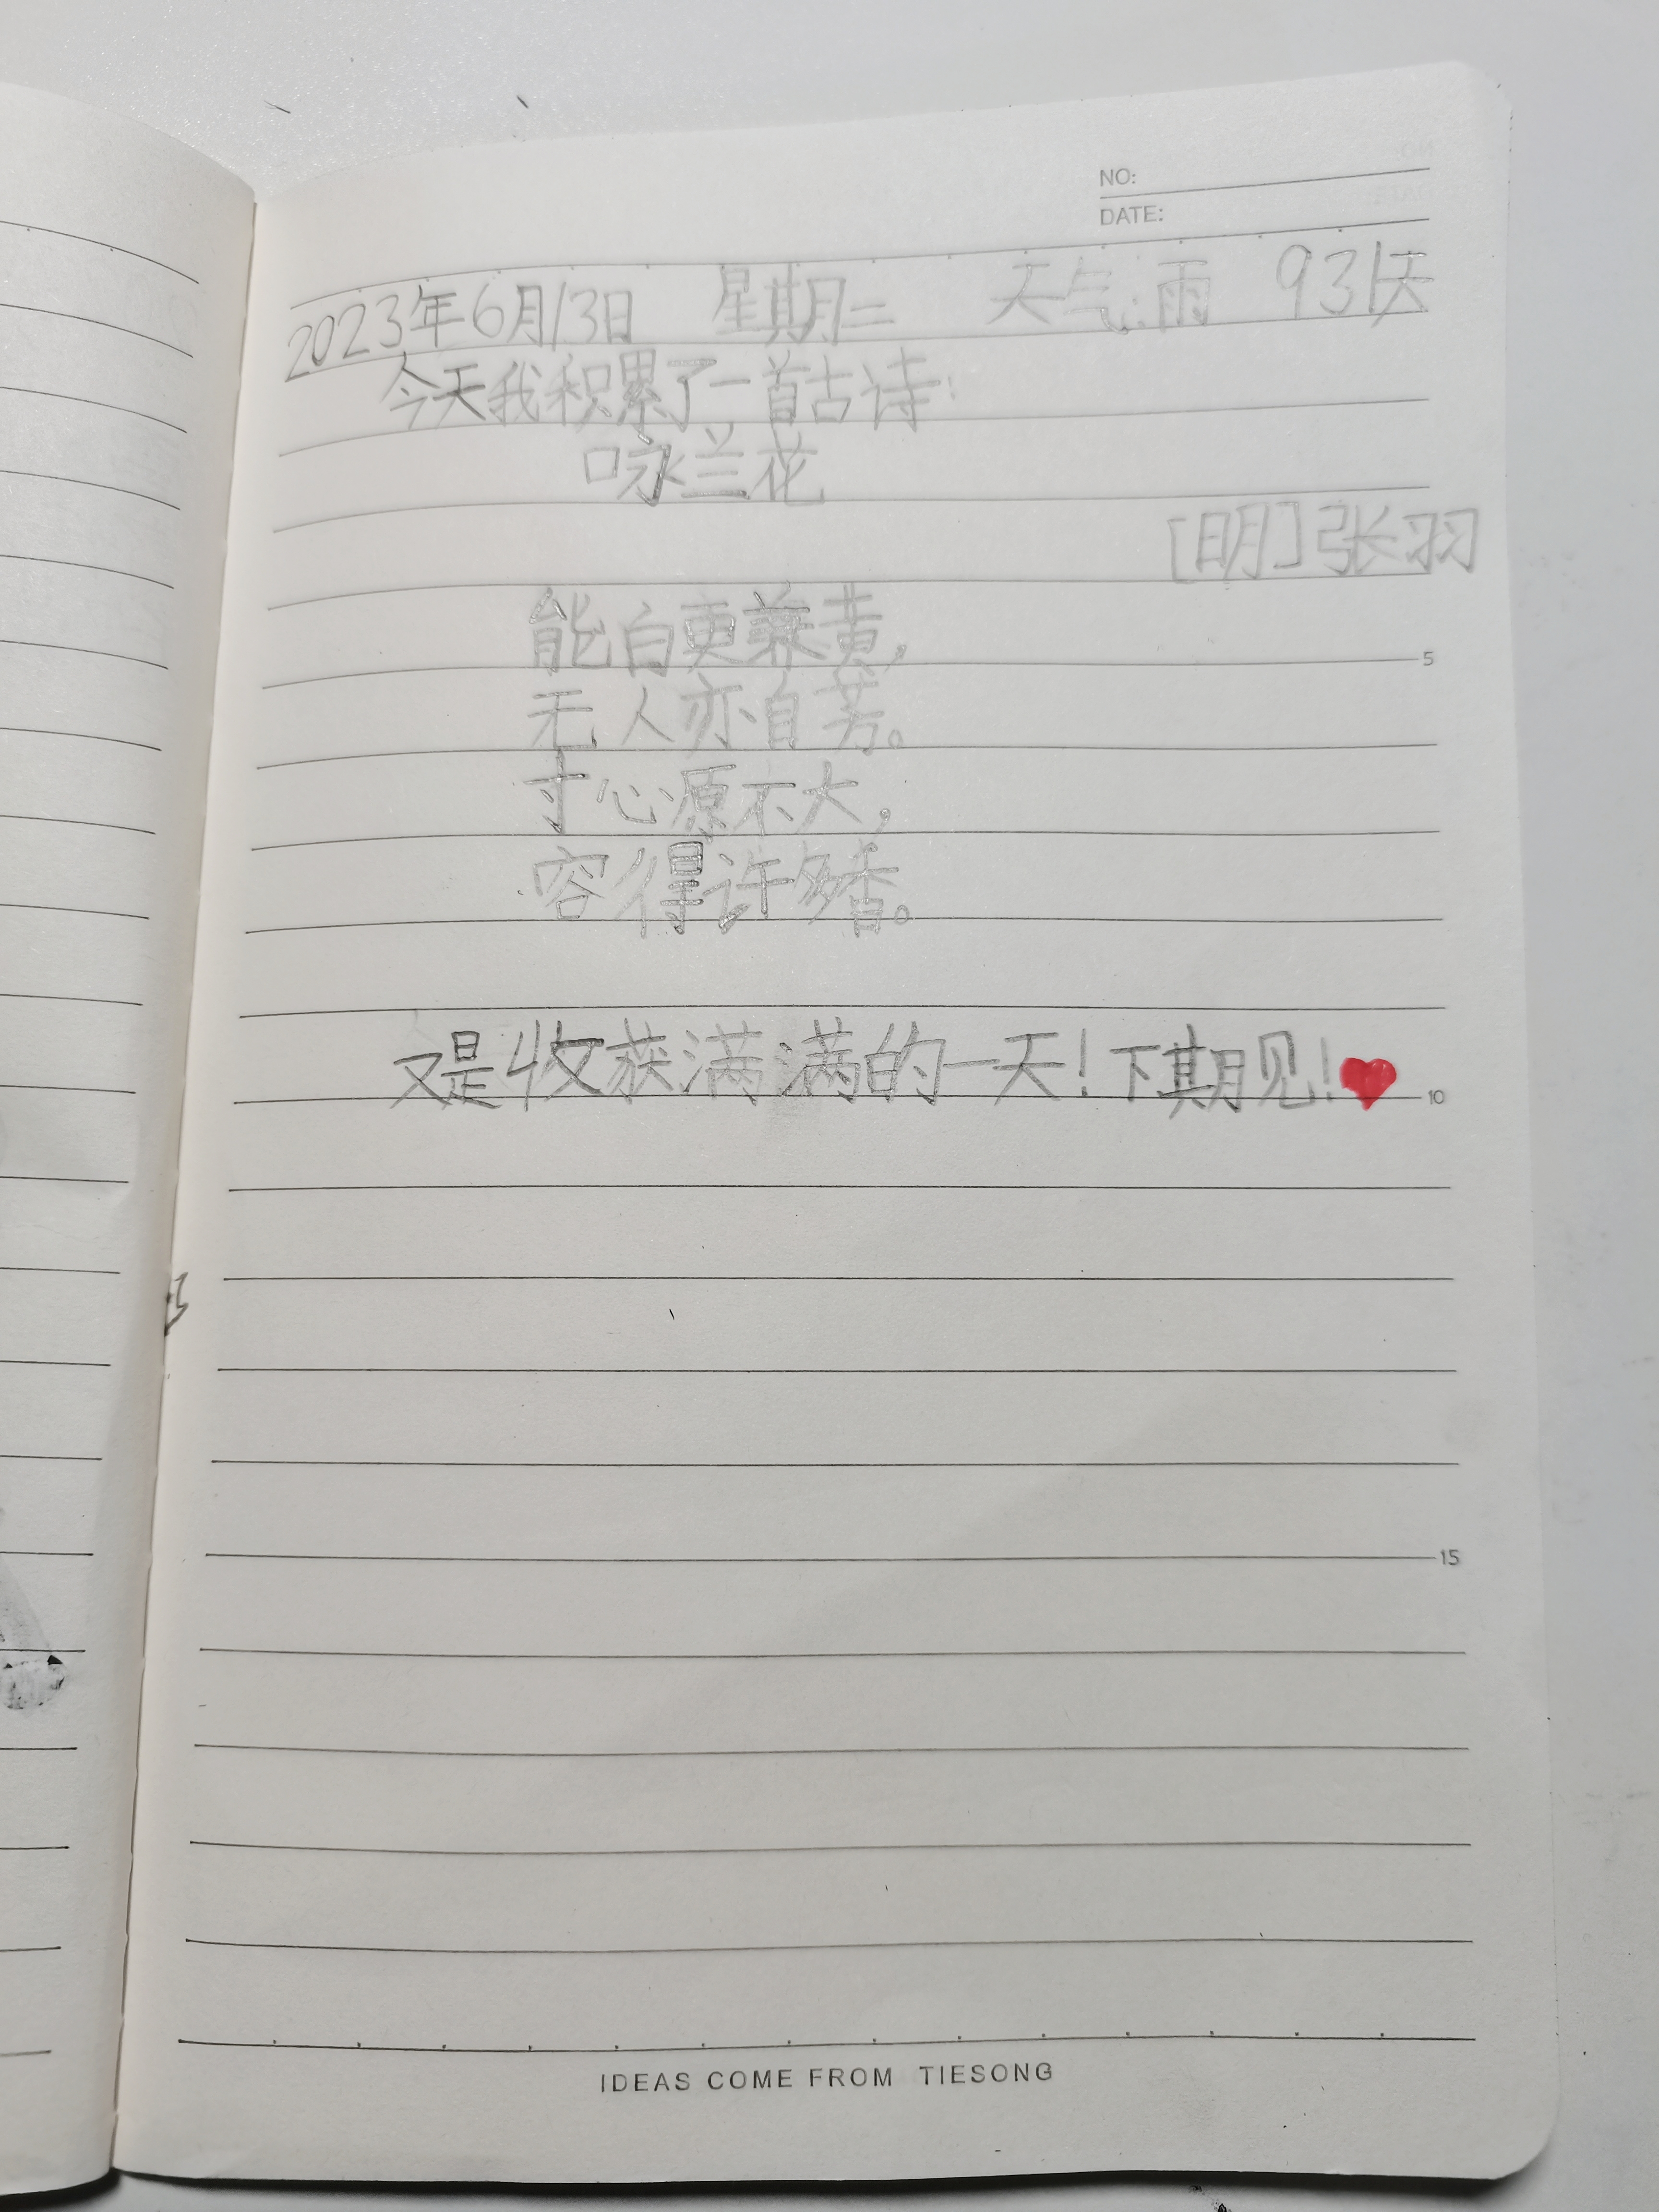 NO:
DATE:
2023年6月13日 星期二 天气:雨 931天
今天我积累了一首古诗:
咏兰花
[明]张羽
能白更兼黄,
无人亦自芳。
寸心原不大,
容得许多香。
又是收获满满的一天!下期见!
5
10
15
IDEAS COME FROM TIESONG